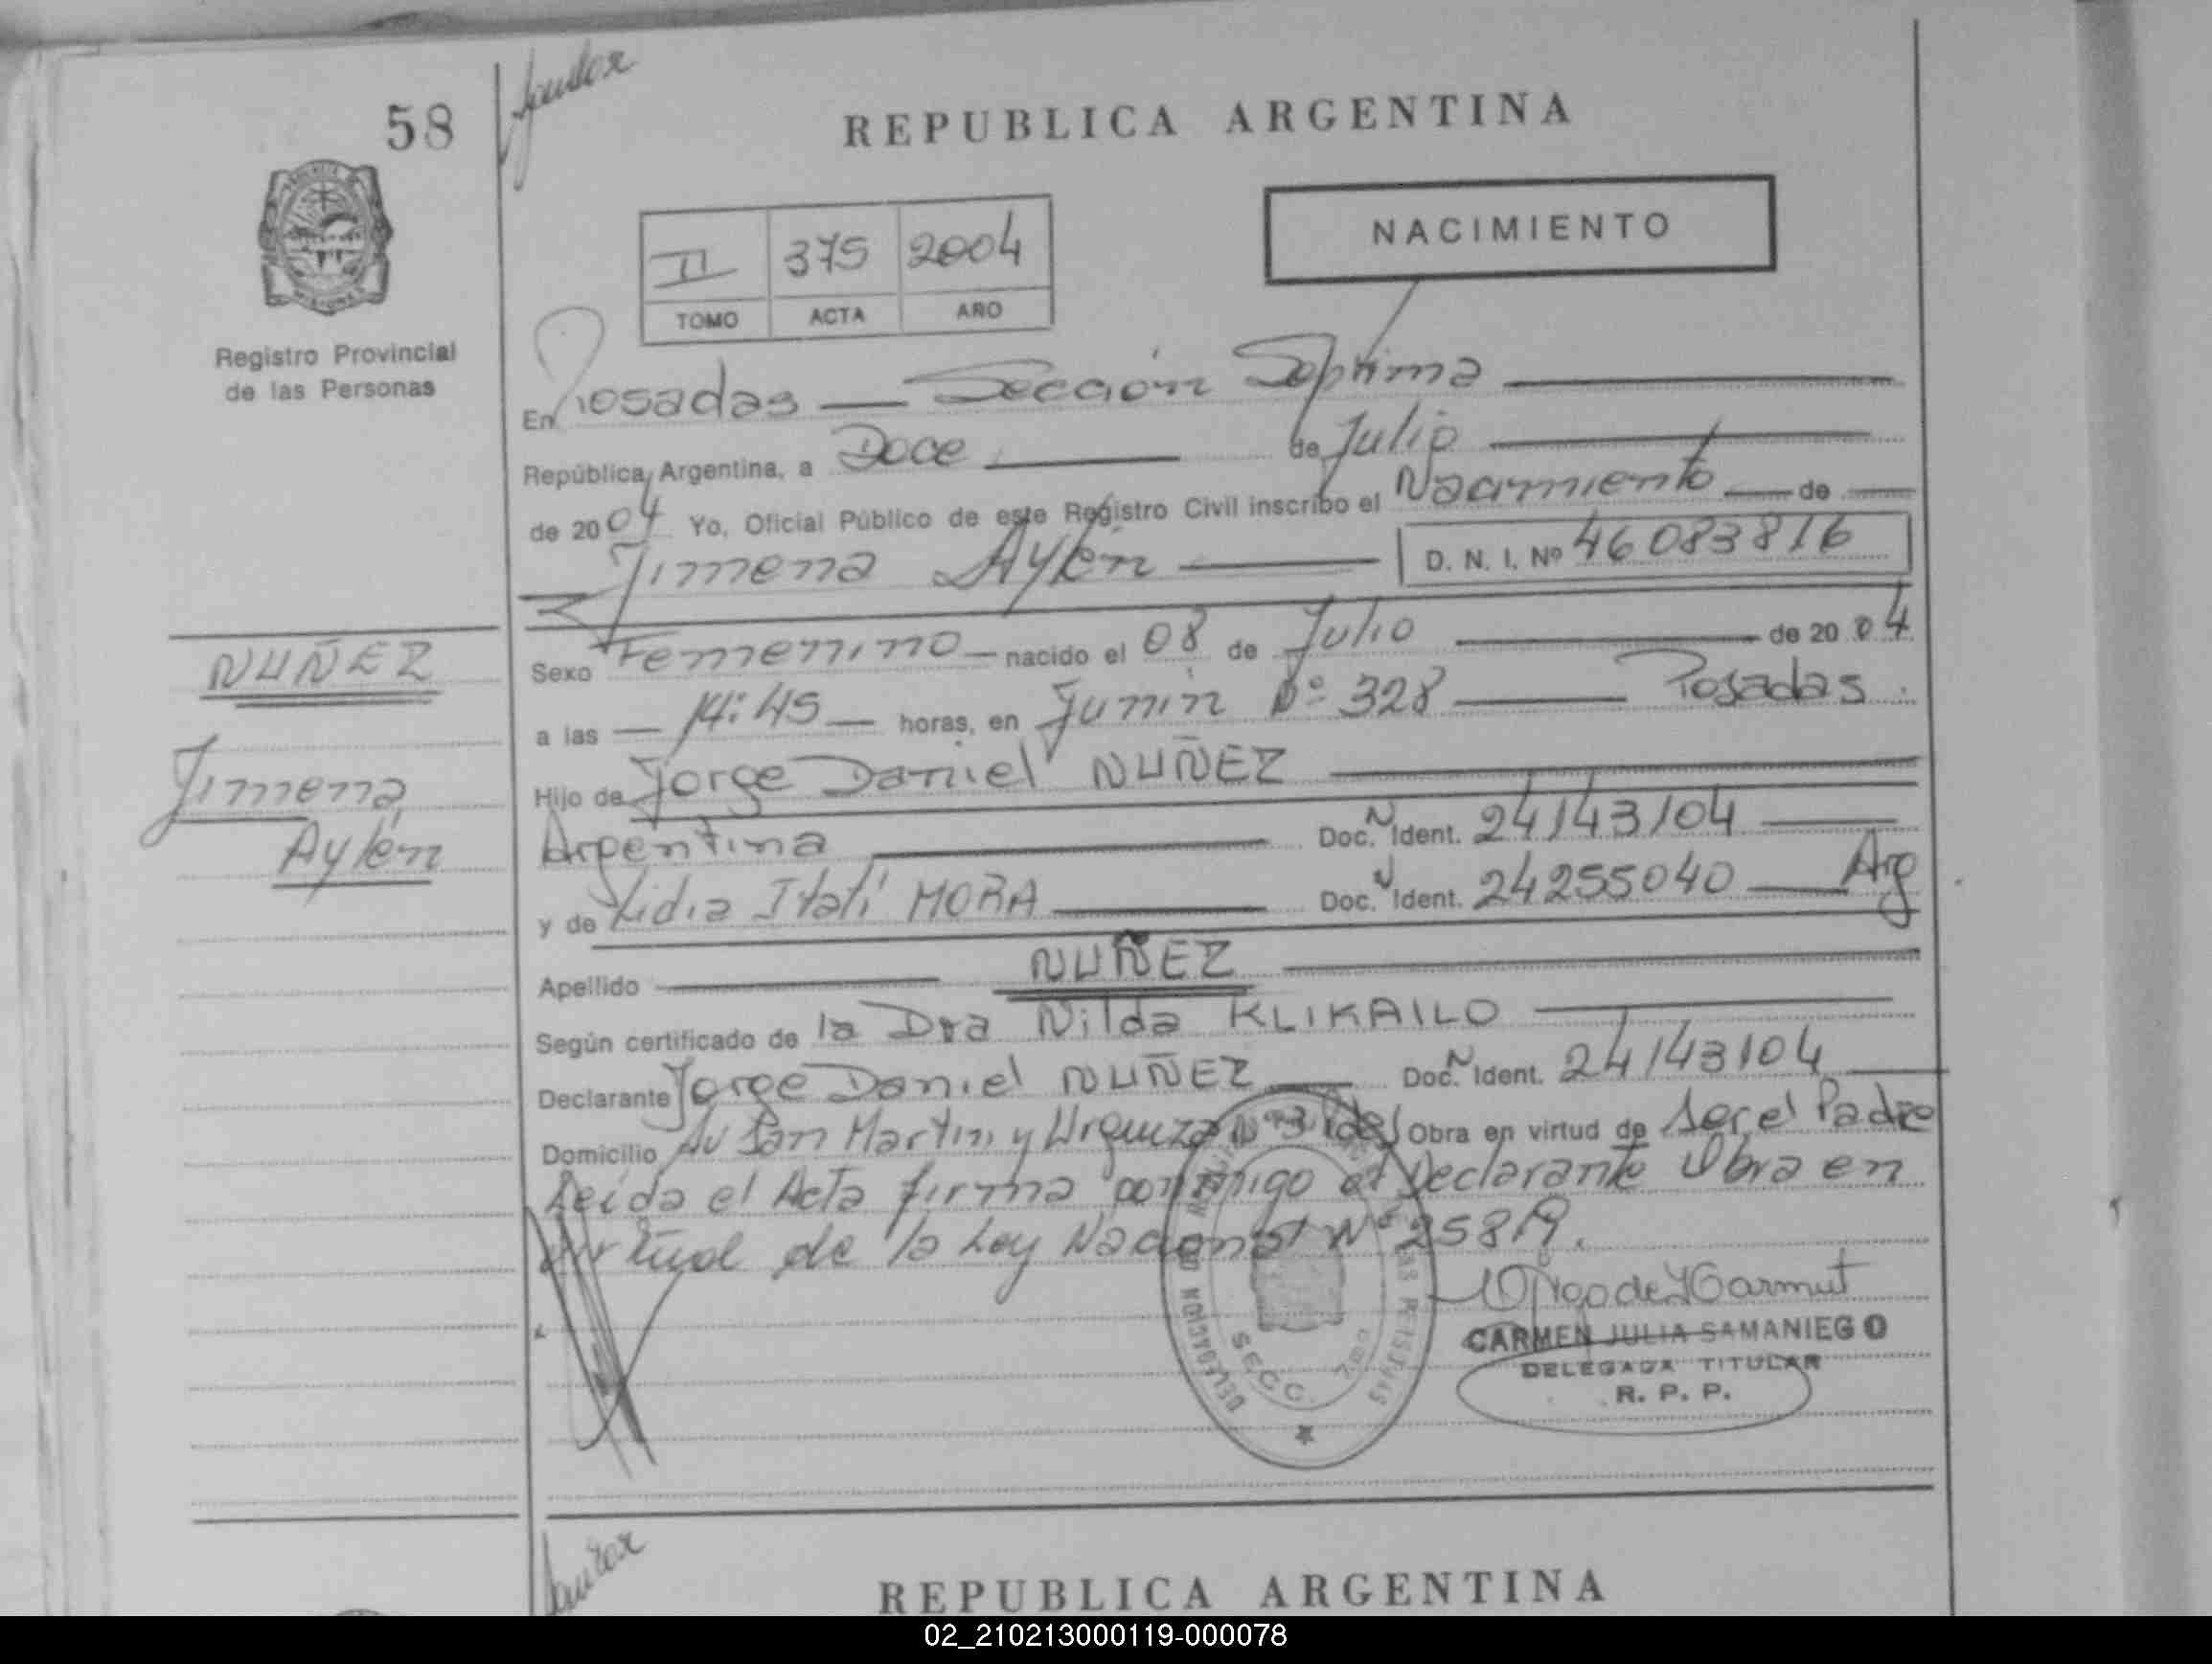 58
REPUBLICA ARGENTINA
NACIMIENTO
II 375 2004
TOMO ACTA AÑO
Registro Provincial
de las Personas
En Posadas — Sección Séptima
República Argentina, a Doce de Julio
de 2004 Yo, Oficial Público de este Registro Civil inscribo el Nacimiento — de
Jimena Aylén D. N. I. Nº 46083816
NUÑEZ
Jimena
Aylén
Sexo Femenino — nacido el 08 de Julio de 2004
a las — 14:45 — horas, en Junín Nº 328 — Posadas
Hijo de Jorge Daniel NUÑEZ
Argentina Doc. N Ident. 24143104
y de Lidia Itatí MORA Doc. N Ident. 24255040 — Arg
Apellido NUÑEZ
Según certificado de la Dra Nilda KLIKAILO
Declarante Jorge Daniel NUÑEZ Doc. N Ident. 24143104
Domicilio Av San Martin y Urquiza Obra en virtud de ser el Padre
Leída el Acta firma conmigo el Declarante Obra en
virtud de la Ley Nacional Nº 25819.
CARMEN JULIA SAMANIEGO
DELEGADA TITULAR
R. P. P.
SECC.
REPUBLICA ARGENTINA
02_210213000119-000078